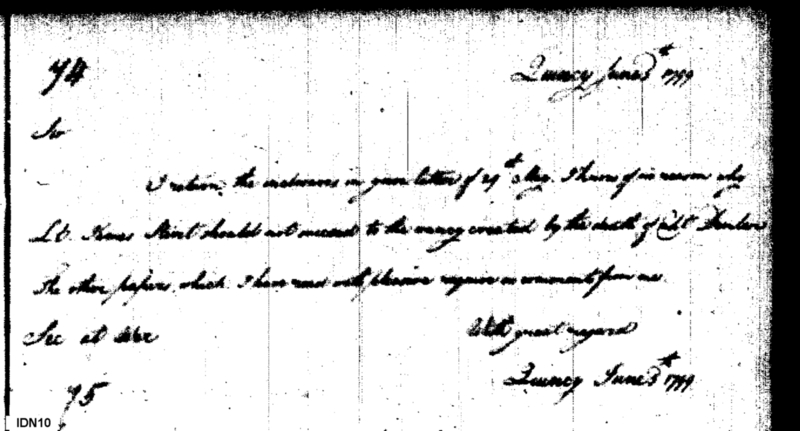 74
Quincy June 3th 1799
Sir
I return the enclosures in your letter of 29th May. I know of no reason why
Lt. should not succeed to the vacancy created by the death of Capt
The other papers, which I have read with pleasure require no comments from me.
Sec at War
With great regard
75
Quincy June 3th 1799
IDN10